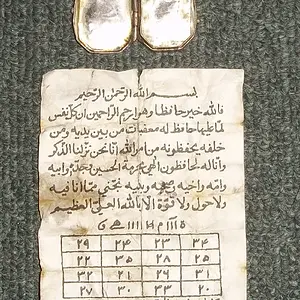 بسم الله الرحمن الرحيم
فالله خير حافظا وهو ارحم الراحمين ان كل نفس
لما عليها حافظ له معقبات من بين يديه ومن
خلفه يحفظونه من امر الله انا نحن نزلنا الذكر
وانا له لحافظون الهي بحرمة الحسين وجده وابيه
وامه واخيه وبنيه نجني مما انا فيه
ولا حول ولا قوة الا بالله العلي العظيم
٣٤ ٢٣ ٢٤ ٢٩
٢٥ ٢٨ ٣٥ ٢٢
٣١ ٢٦ ٢١ ٣٢
٢٠ ٣٣ ٣٠ ٢٧